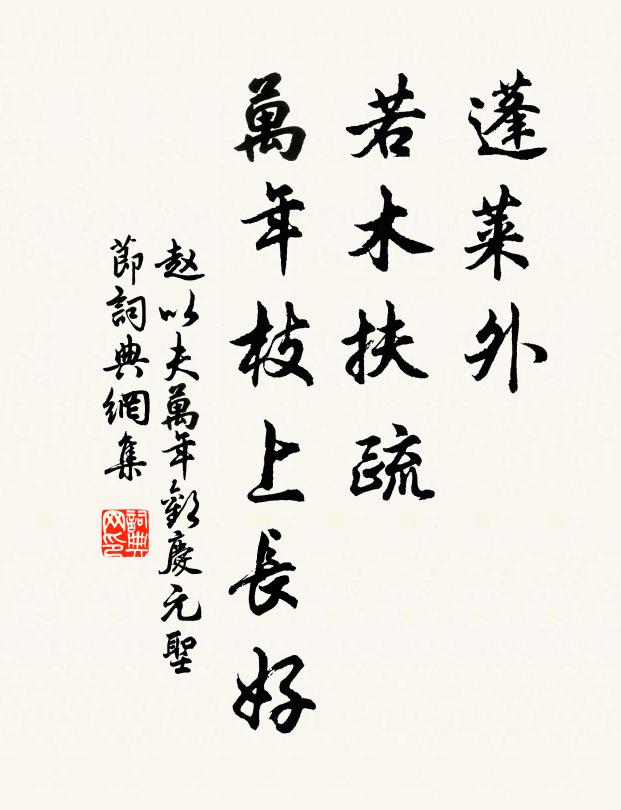 蓬萊外
若木扶疏
萬年枝上長好
趙以夫萬年歡慶元聖
節詞典網集
詞典
网印